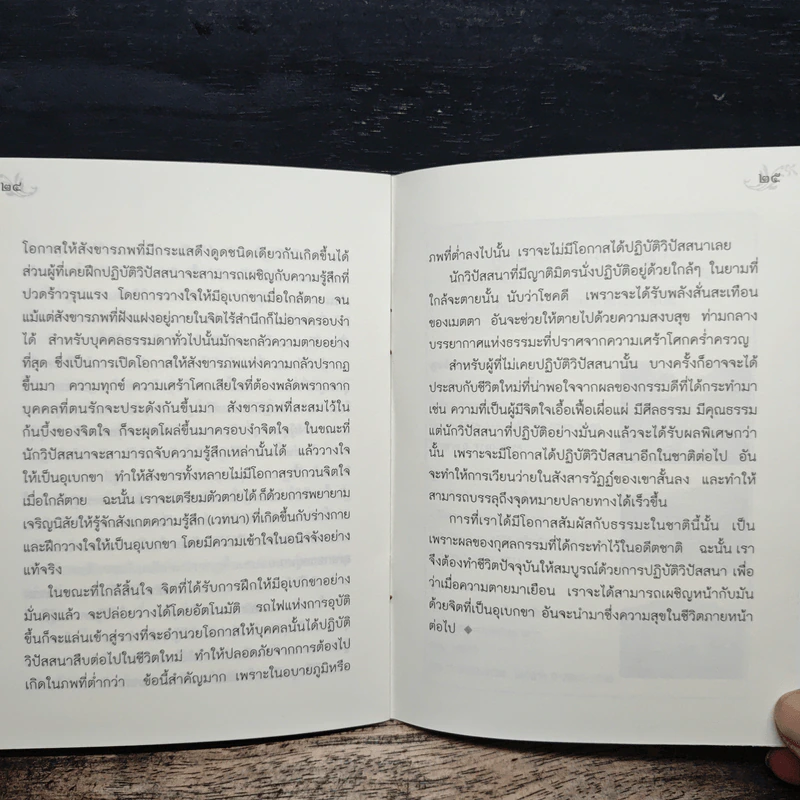 ๒๔
โอกาสให้สังขารภพที่มีกระแสดึงดูดชนิดเดียวกันเกิดขึ้นได้
ส่วนผู้ที่เคยฝึกปฏิบัติวิปัสสนาจะสามารถเผชิญกับความรู้สึกที่
ปวดร้าวรุนแรง โดยการวางใจให้มีอุเบกขาเมื่อใกล้ตาย จน
แม้แต่สังขารภพที่ฝังแฝงอยู่ภายในจิตไร้สำนึกก็ไม่อาจครอบงำ
ได้ สำหรับบุคคลธรรมดาทั่วไปนั้นมักจะกลัวความตายอย่าง
ที่สุด ซึ่งเป็นการเปิดโอกาสให้สังขารภพแห่งความกลัวปรากฏ
ขึ้นมา ความทุกข์ ความเศร้าโศกเสียใจที่ต้องพลัดพรากจาก
บุคคลที่ตนรักจะประดังกันขึ้นมา สังขารภพที่สะสมไว้ใน
ก้นบึ้งของจิตใจ ก็จะผุดโผล่ขึ้นมาครอบงำจิตใจ ในขณะที่
นักวิปัสสนาจะสามารถจับความรู้สึกเหล่านั้นได้ แล้ววางใจ
ให้เป็นอุเบกขา ทำให้สังขารทั้งหลายไม่มีโอกาสรบกวนจิตใจ
เมื่อใกล้ตาย ฉะนั้น เราจะเตรียมตัวตายได้ ก็ด้วยการพยายาม
เจริญนิสัยให้รู้จักสังเกตความรู้สึก (เวทนา) ที่เกิดขึ้นกับร่างกาย
และฝึกวางใจให้เป็นอุเบกขา โดยมีความเข้าใจในอนิจจังอย่าง
แท้จริง
ในขณะที่ใกล้สิ้นใจ จิตที่ได้รับการฝึกให้มีอุเบกขาอย่าง
มั่นคงแล้ว จะปล่อยวางได้โดยอัตโนมัติ รถไฟแห่งการอุบัติ
ขึ้นก็จะแล่นเข้าสู่รางที่จะอำนวยโอกาสให้บุคคลนั้นได้ปฏิบัติ
วิปัสสนาสืบต่อไปในชีวิตใหม่ ทำให้ปลอดภัยจากการต้องไป
เกิดในภพที่ต่ำกว่า ข้อนี้สำคัญมาก เพราะในอบายภูมิหรือ
๒๕
ภพที่ต่ำลงไปนั้น เราจะไม่มีโอกาสได้ปฏิบัติวิปัสสนาเลย
นักวิปัสสนาที่มีญาติมิตรนั่งปฏิบัติอยู่ด้วยใกล้ๆ ในยามที่
ใกล้จะตายนั้น นับว่าโชคดี เพราะจะได้รับพลังสั่นสะเทือน
ของเมตตา อันจะช่วยให้ตายไปด้วยความสงบสุข ท่ามกลาง
บรรยากาศแห่งธรรมะที่ปราศจากความเศร้าโศกคร่ำครวญ
สำหรับผู้ที่ไม่เคยปฏิบัติวิปัสสนานั้น บางครั้งก็อาจจะได้
ประสบกับชีวิตใหม่ที่น่าพอใจจากผลของกรรมดีที่ได้กระทำมา
เช่น ความที่เป็นผู้มีจิตใจเอื้อเฟื้อเผื่อแผ่ มีศีลธรรม มีคุณธรรม
แต่นักวิปัสสนาที่ปฏิบัติอย่างมั่นคงแล้วจะได้รับผลพิเศษกว่า
นั้น เพราะจะมีโอกาสได้ปฏิบัติวิปัสสนาอีกในชาติต่อไป อัน
จะทำให้การเวียนว่ายในสังสารวัฏฏ์ของเขาสั้นลง และทำให้
สามารถบรรลุถึงจุดหมายปลายทางได้เร็วขึ้น
การที่เราได้มีโอกาสสัมผัสกับธรรมะในชาตินี้นั้น เป็น
เพราะผลของกุศลกรรมที่ได้กระทำไว้ในอดีตชาติ ฉะนั้น เรา
จึงต้องทำชีวิตปัจจุบันให้สมบูรณ์ด้วยการปฏิบัติวิปัสสนา เพื่อ
ว่าเมื่อความตายมาเยือน เราจะได้สามารถเผชิญหน้ากับมัน
ด้วยจิตที่เป็นอุเบกขา อันจะนำมาซึ่งความสุขในชีวิตภายหน้า
ต่อไป ◆